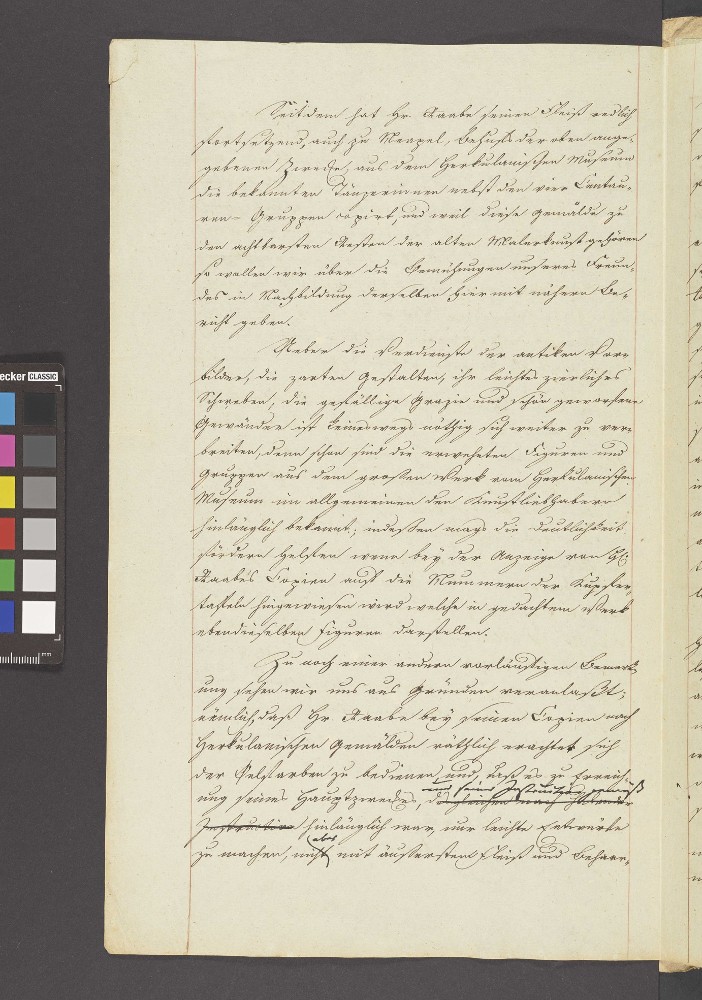 Seitdem hat Hr. Raabe seinen Fleiß redlich
fortsetzend, auch zu Neapel, behufs der oben ange-
gebenen Zwecke, aus dem Herkulanischen Museum
die bekannten Tänzerinnen nebst den vier Centau-
ren-Gruppen copirt, und weil diese Gemälde zu
den achtbarsten Resten der alten Malerkunst gehören
so wollen wir über die Bemühungen unseres Freun-
des in Nachbildung derselben hiermit nähern Be-
richt geben.
Ueber die Verdienste der antiken Vor-
bilder, die zarten Gestalten, ihr leichtes zierliches
Schweben, die gefällige Grazie und schön geworfenen
Gewänder ist keineswegs nöthig sich weiter zu ver-
breiten, denn schon sind die erwehnten Figuren und
Gruppen aus dem großen Werk vom Herkulanischen
Museum im allgemeinen den Kunstliebhabern
hinlänglich bekannt; indessen mags die Deutlichkeit
fördern helfen wenn bey der Anzeige von Hr.
Raabe's Copien auf die Nummern der Kupfer-
tafeln hingewiesen wird welche in gedachtem Werk
ebendieselben Figuren darstellen.
Zu noch einer andern vorläufigen Bemerk-
ung sehen wir uns aus Gründen veranlaßt;
nämlich, daß Hr Raabe bey seinen Copien nach
Herkulanischen Gemälden räthlich erachtet sich
der Oelfarben zu bedienen, und, daß es zu Erreich-
und seiner Instruction gemäß
ung seines Hauptzweckes,
Instruction hinlänglich war, nur leichte Entwürfe
aber
zu machen, nicht mit äußerstem Fleiß und Beharr-